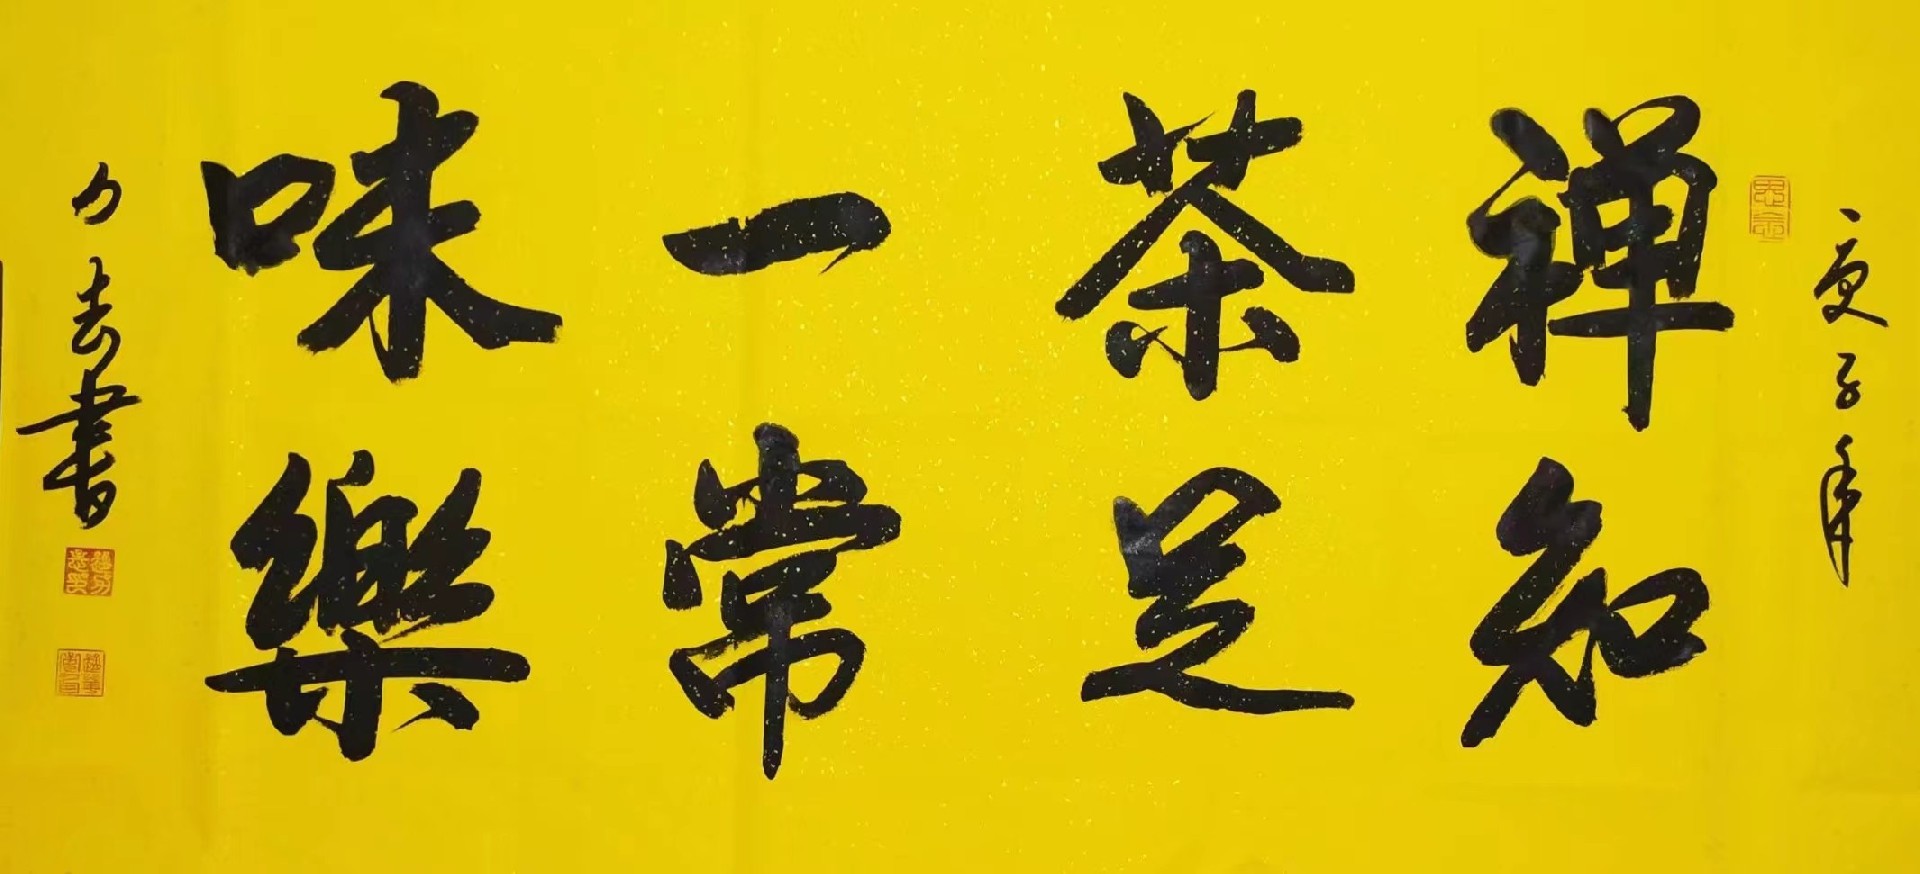 庚子年
禅茶一味
知足常樂
力 書